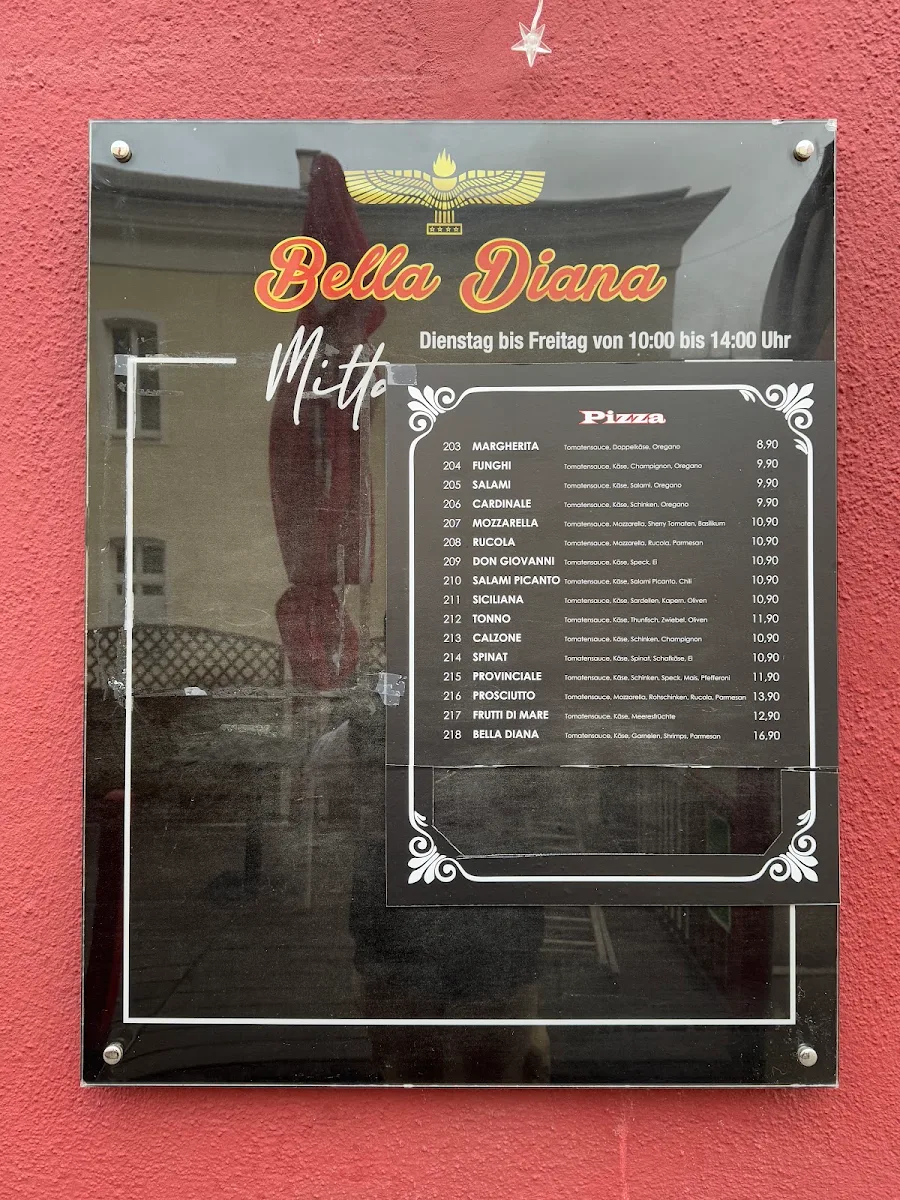 Bella Diana
Dienstag bis Freitag von 10:00 bis 14:00 Uhr
Mitta
Pizza
203 MARGHERITA Tomatensauce, Doppelkäse, Oregano 8,90
204 FUNGHI Tomatensauce, Käse, Champignon, Oregano 9,90
205 SALAMI Tomatensauce, Käse, Salami, Oregano 9,90
206 CARDINALE Tomatensauce, Käse, Schinken, Oregano 9,90
207 MOZZARELLA Tomatensauce, Mozzarella, Sherry Tomaten, Basilikum 10,90
208 RUCOLA Tomatensauce, Mozzarella, Rucola, Parmesan 10,90
209 DON GIOVANNI Tomatensauce, Käse, Speck, Ei 10,90
210 SALAMI PICANTO Tomatensauce, Käse, Salami Picanto, Chili 10,90
211 SICILIANA Tomatensauce, Käse, Sardellen, Kapern, Oliven 10,90
212 TONNO Tomatensauce, Käse, Thunfisch, Zwiebel, Oliven 11,90
213 CALZONE Tomatensauce, Käse, Schinken, Champignon 10,90
214 SPINAT Tomatensauce, Käse, Spinat, Schafkäse, Ei 10,90
215 PROVINCIALE Tomatensauce, Käse, Schinken, Speck, Mais, Pfefferoni 11,90
216 PROSCIUTTO Tomatensouce, Mozzarella, Rohschinken, Rucola, Parmesan 13,90
217 FRUTTI DI MARE Tomatensauce, Käse, Meeresfrüchte 12,90
218 BELLA DIANA Tomatensauce, Käse, Garnelen, Shrimps, Parmesan 16,90